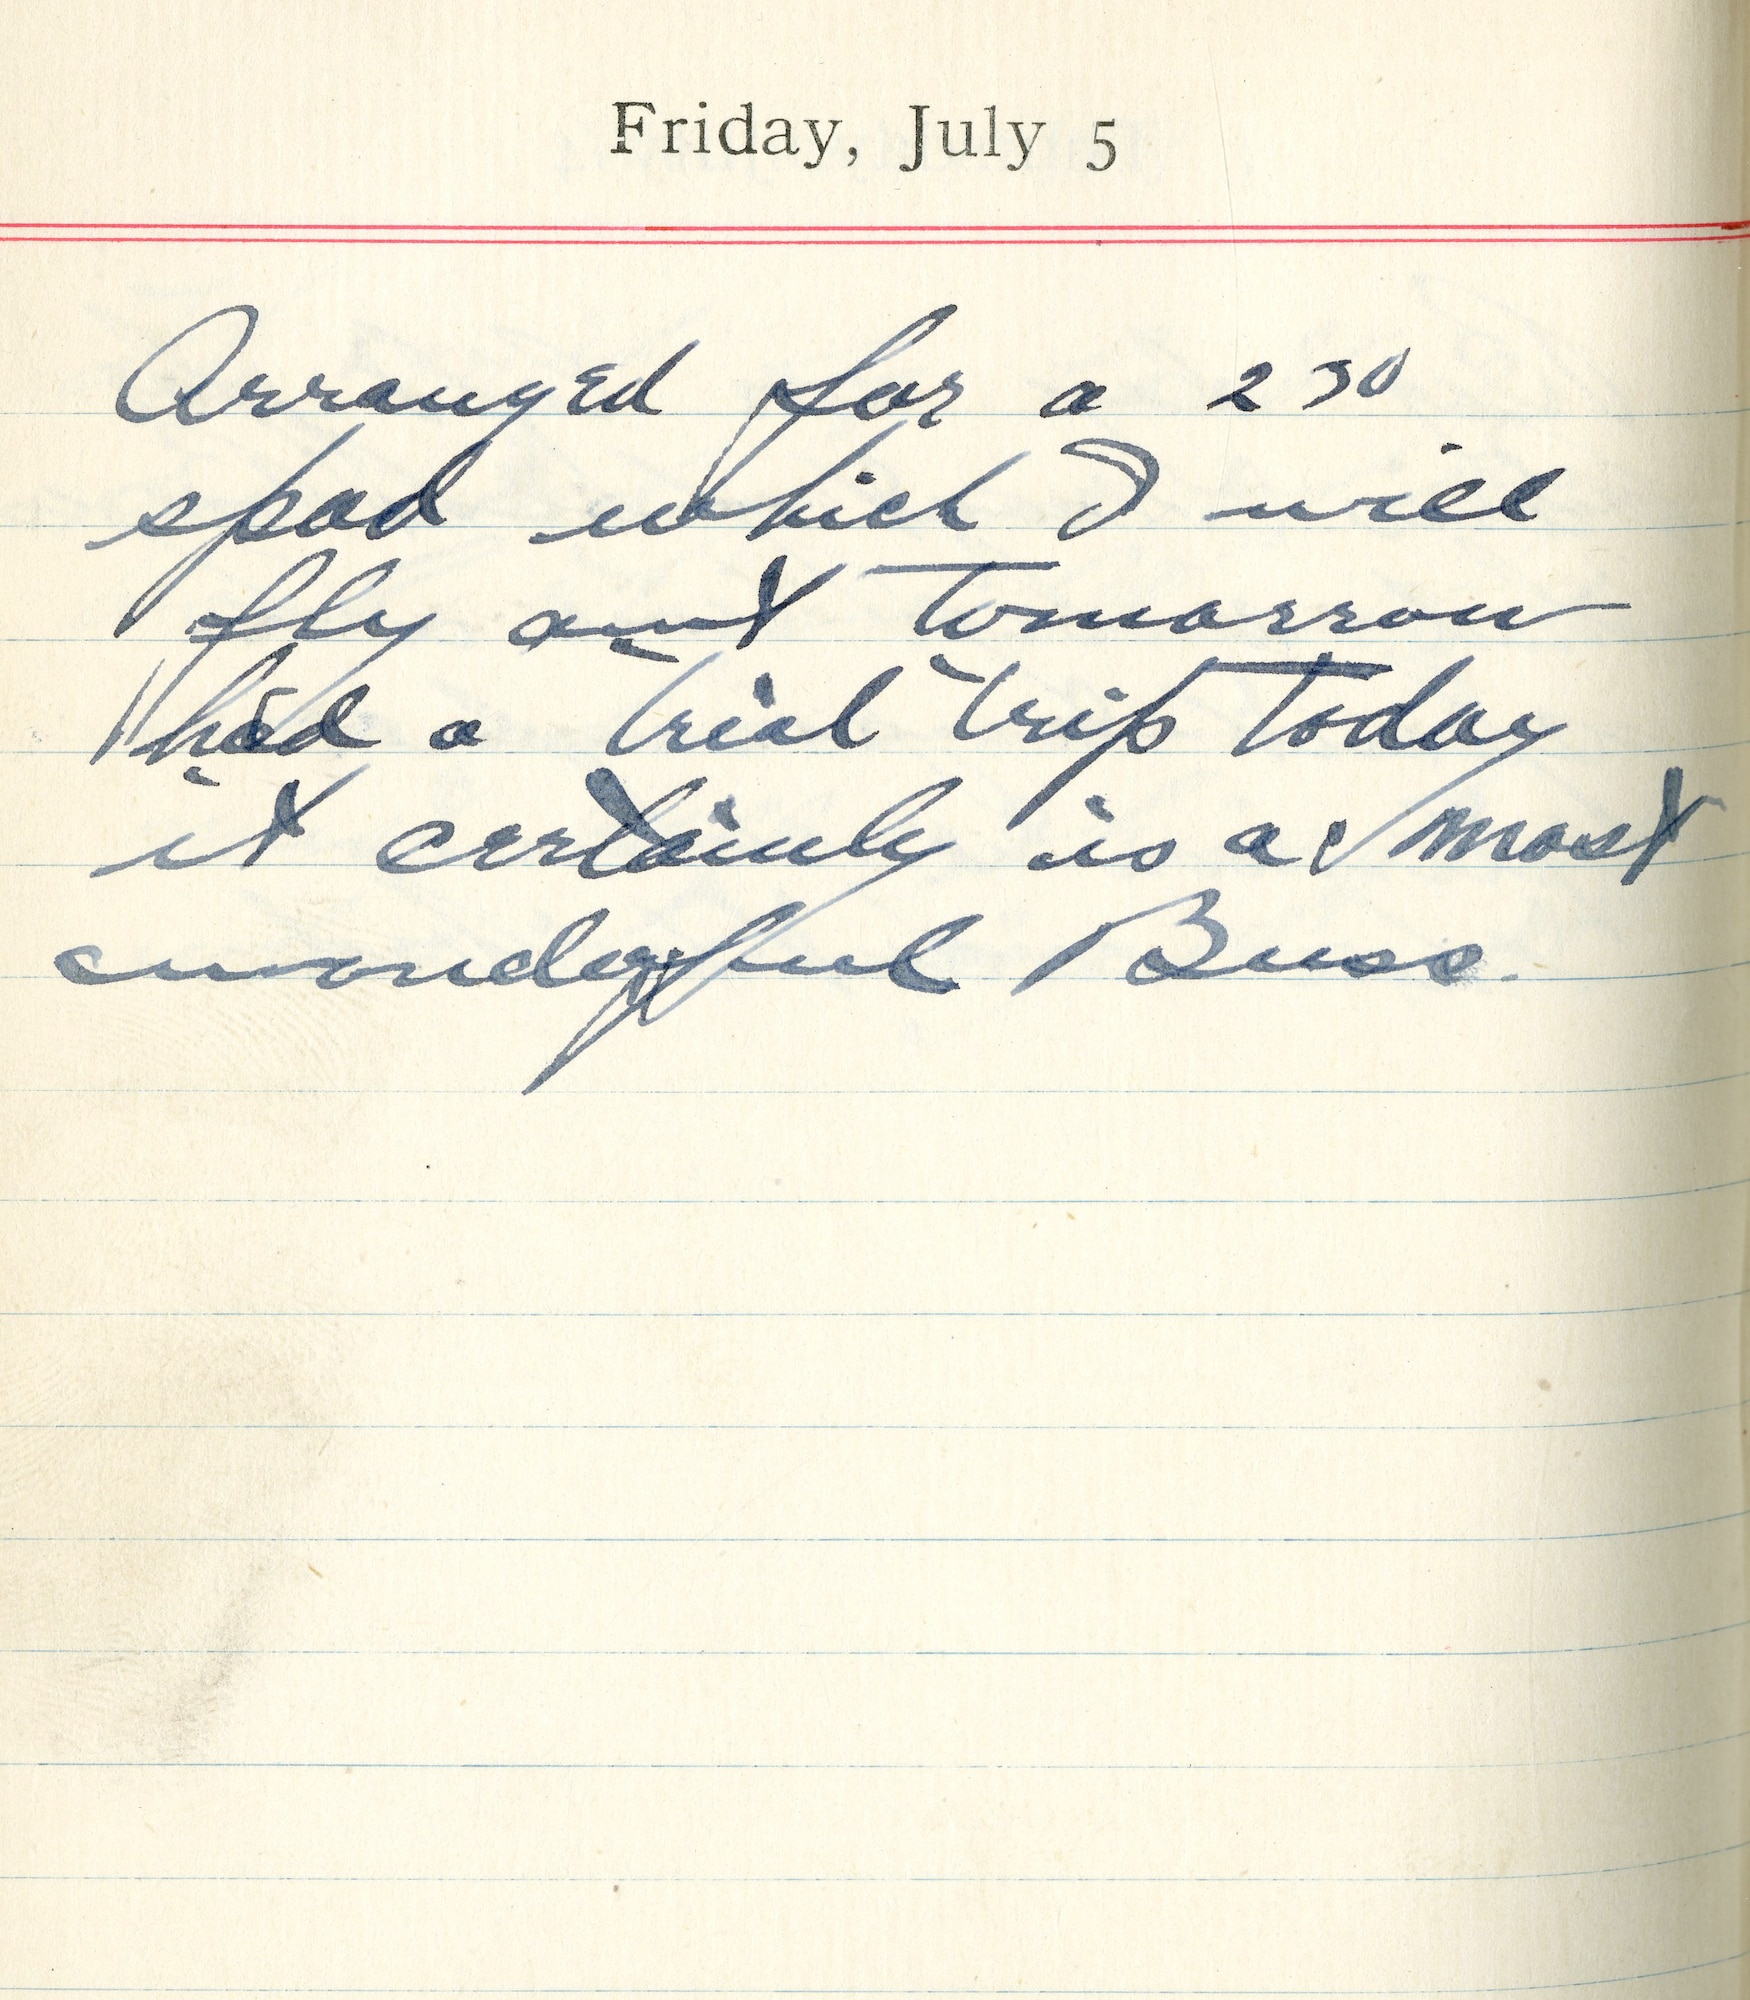 Friday, July 5
Arranged for a 230
spad which I will
fly out tomorrow
had a trial trip today
it certainly is a most
wonderful Buss.